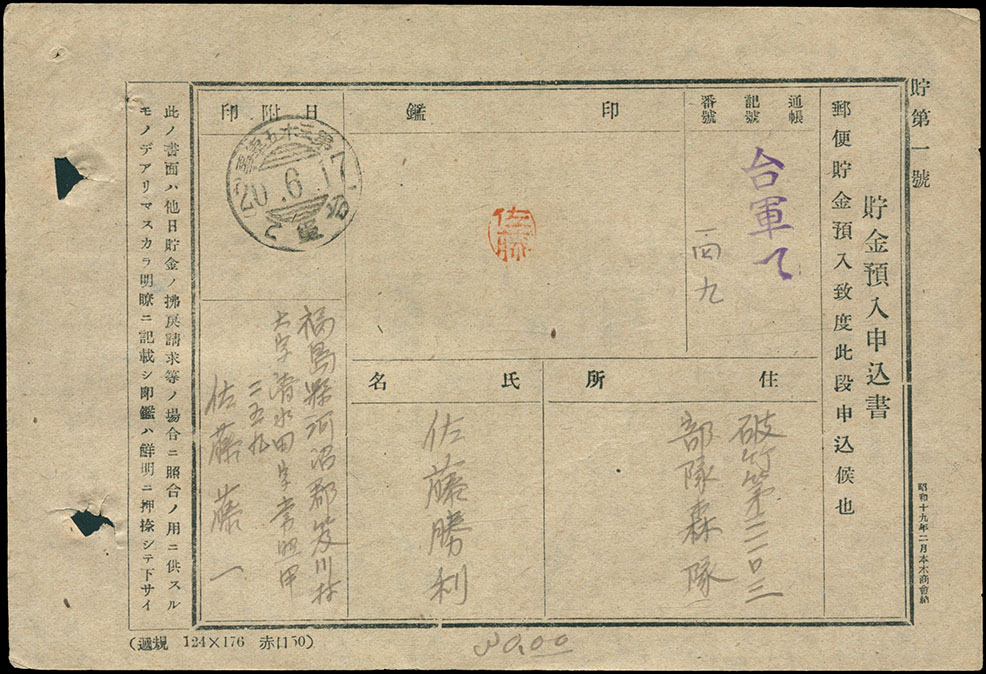 貯第一號
貯金預入申込書
郵便貯金預入致度此段申込候也
昭和十九年二月本木商會納
通帳
記號
番號
台軍て
一四九
印鑑
佐藤
日附印
20.6.17
台軍
て
住所
破竹第二二〇三
部隊森隊
氏名
佐藤勝利
福島縣河沼郡笈川村
大字清水田字常照甲
二五九
佐藤藤一
此ノ書面ハ他日貯金ノ拂戻請求等ノ場合ニ照合ノ用ニ供スル
モノデアリマスカラ明瞭ニ記載シ印鑑ハ鮮明ニ押捺シテ下サイ
(遞規 124×176 赤口50)
30.00